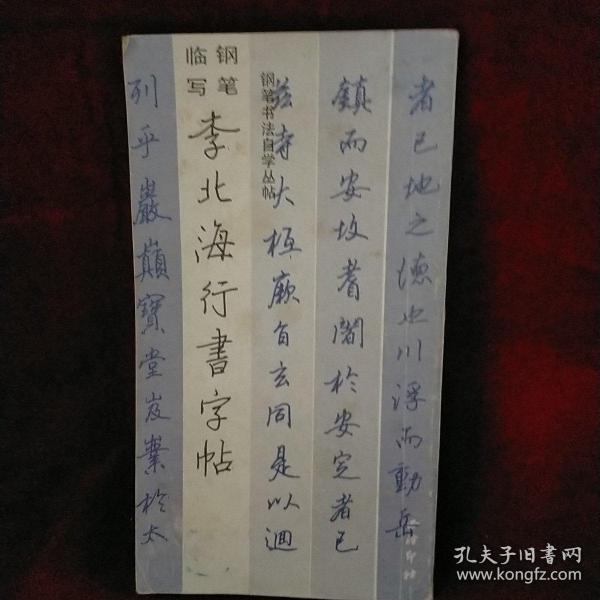 钢笔
临写
李北海行書字帖
钢笔书法自学丛帖
者已地之德也川浮而動岳
鎮而安故耆闍於安定者已
兹寺大極厥旨玄同是以迴
列乎巖巔寶堂岌業於太
孔夫子旧書网
www.kongfz.com